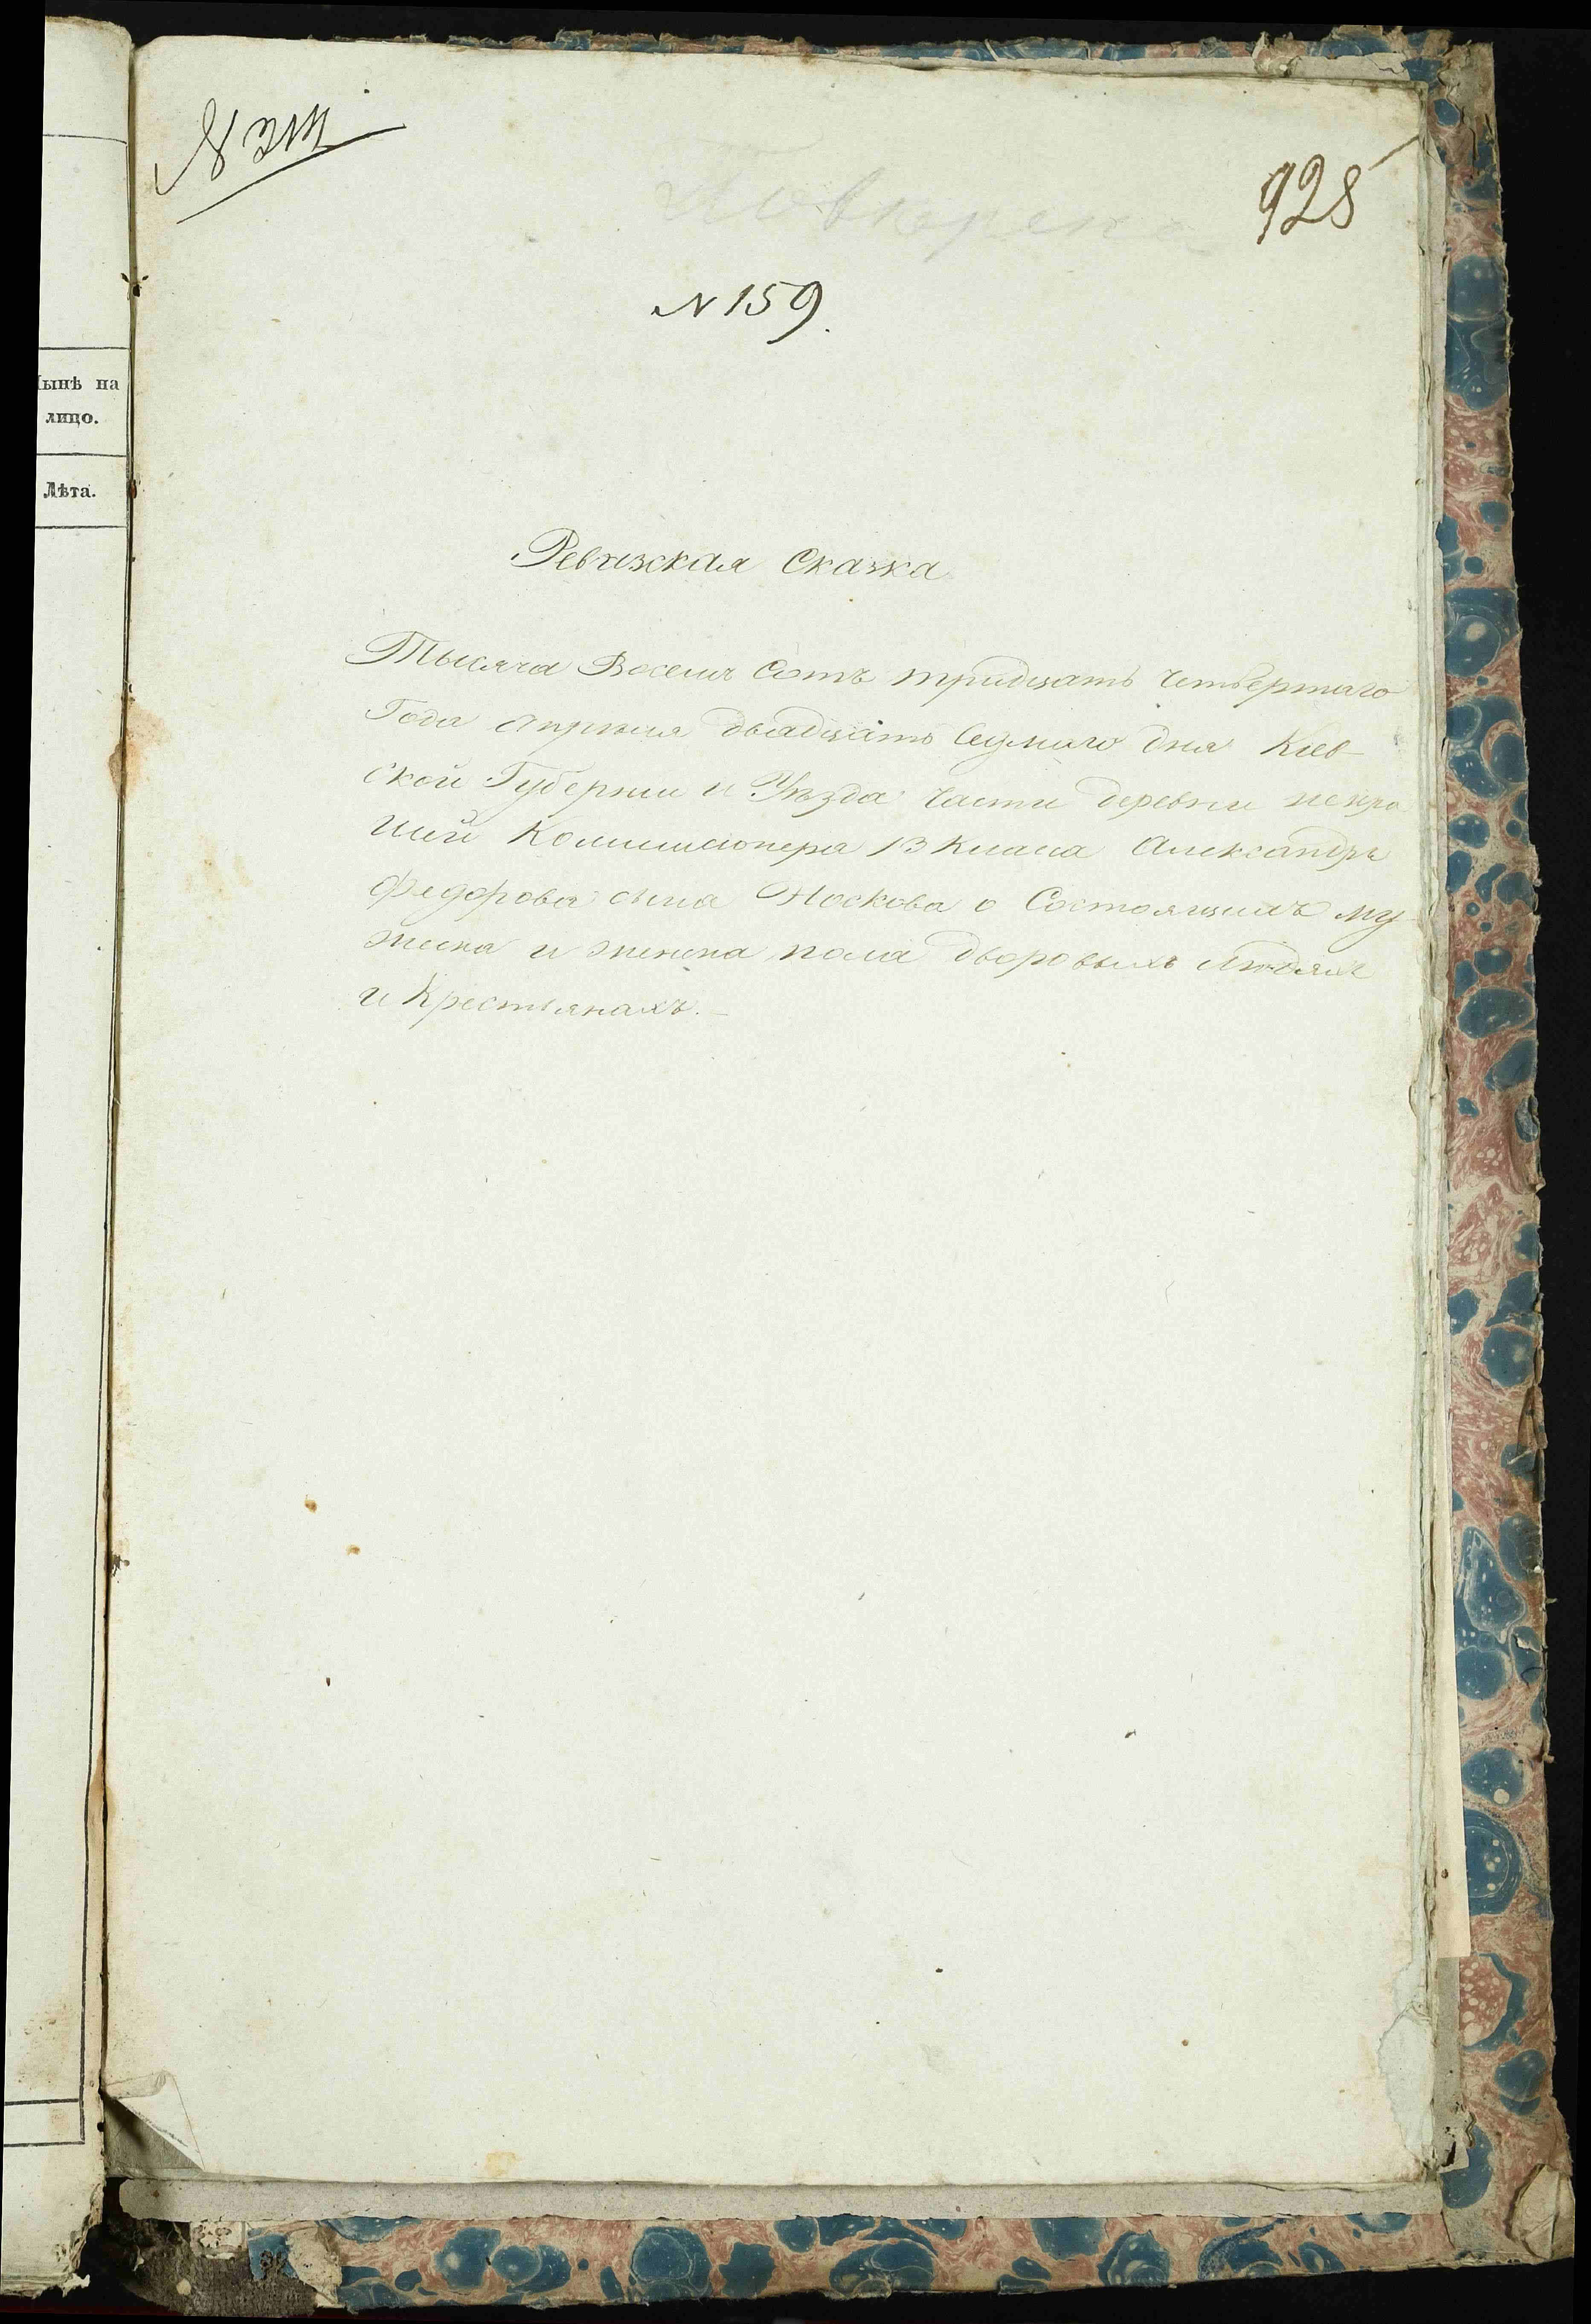 925
Повторена
N 159.
ынѣ на
лицо.
Лѣта.
Ревизская Сказка
Тысяча Восемь Сотъ тридцать четвертаго
Года Апреля двадцать Седмаго дня Кіев-
ской Губерніи и Уѣзда части деревни некра
шей Коммисіонера 13 Класа Александра
Федорова сына Носкова о Состоящихъ му-
жеска и женска пола дворовыхъ людяхъ
и Крестьянахъ.-